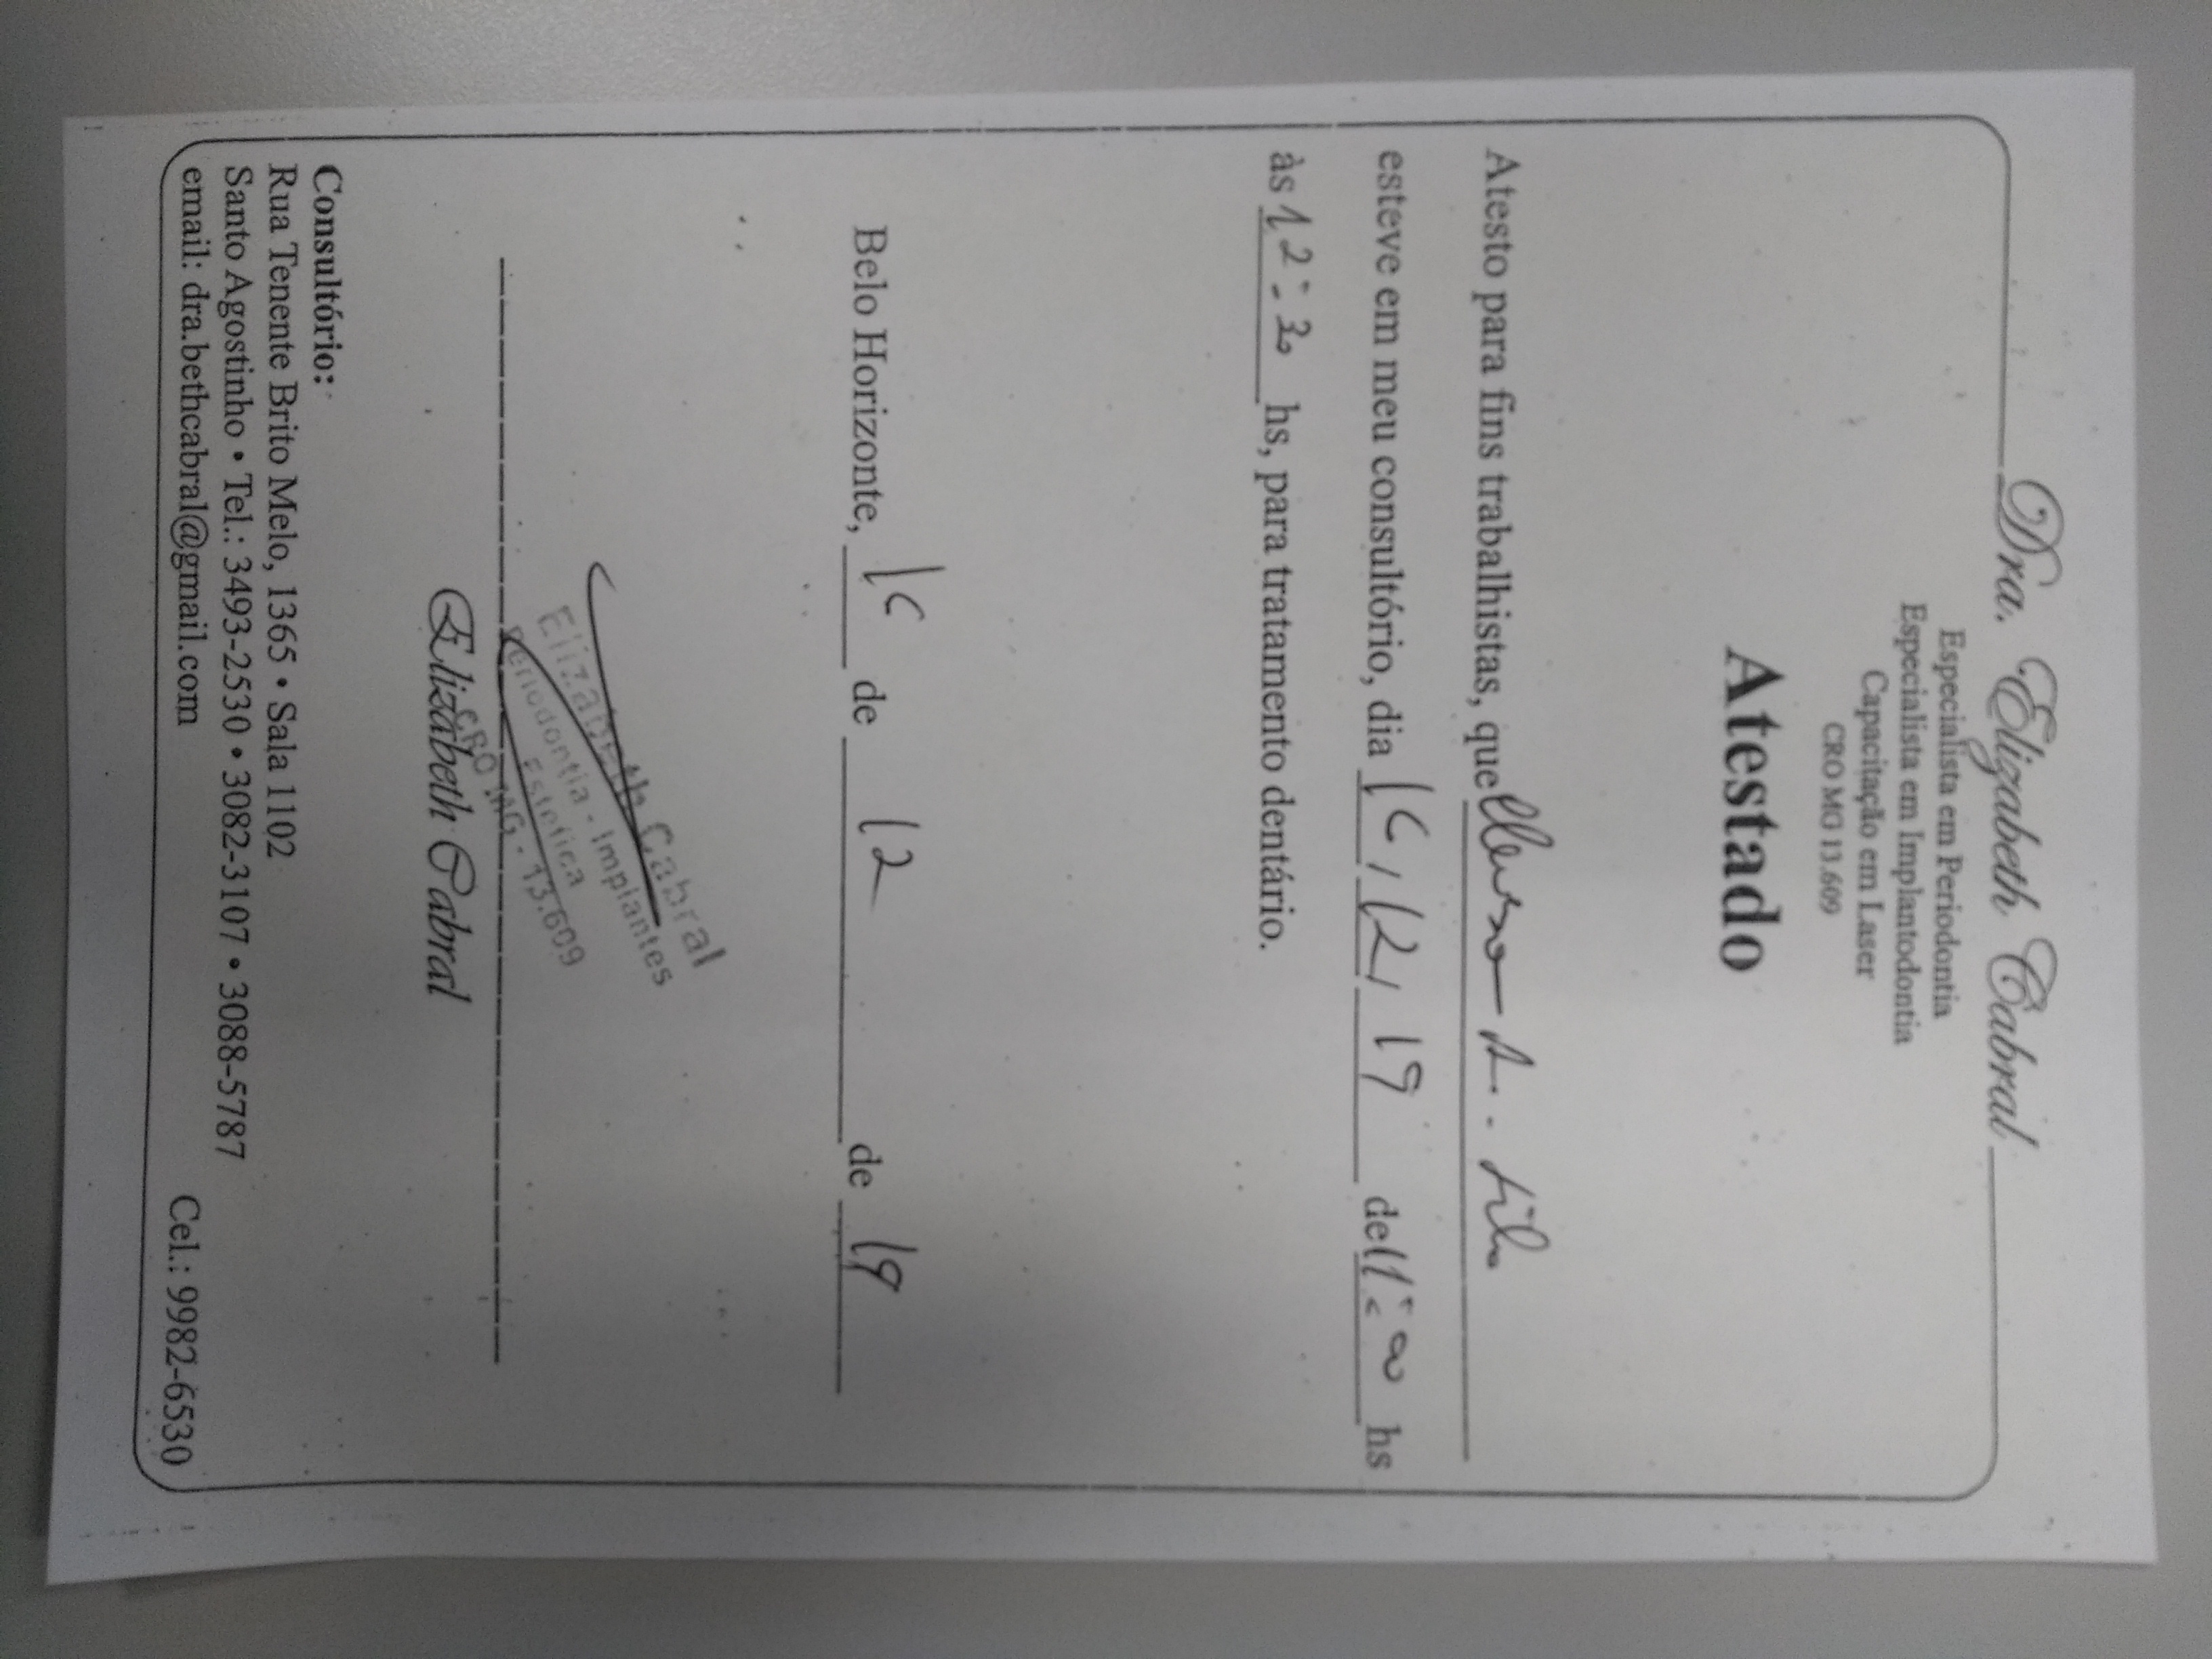 Dra. Elizabeth Cabral
Especialista em Periodontia
Especialista em Implantodontia
Capacitação em Laser
CRO MG 13.609
Atestado
Atesto para fins trabalhistas, que A.
esteve em meu consultório, dia / 12 / 19 de 11:00 hs
às 12:30 hs, para tratamento dentário.
Belo Horizonte, de 12 de 19
Elizabeth Cabral
Periodontia - Implantes
Estética
CRO.MG - 13.609
Elizabeth Cabral
Consultório:
Rua Tenente Brito Melo, 1365 • Sala 1102
Santo Agostinho • Tel.: 3493-2530 • 3082-3107 • 3088-5787
email: dra.bethcabral@gmail.com Cel.: 9982-6530